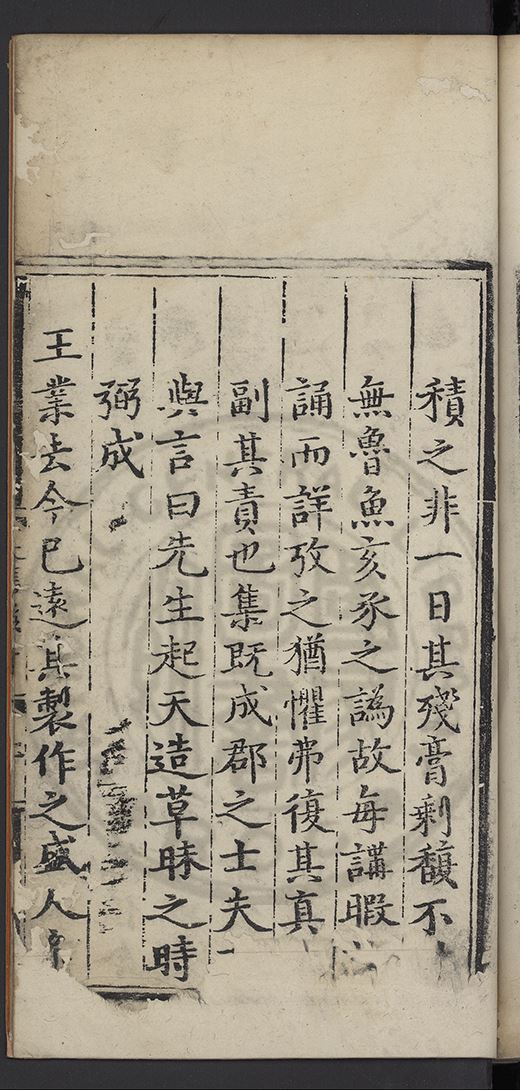 積之非一日其殘膏剩馥不
無魯魚亥豕之譌故每講暇
誦而詳攷之猶懼弗復其真
副其責也集既成郡之士夫
與言曰先生起天造草昧之時
弼成
王業去今已遠其製作之盛人